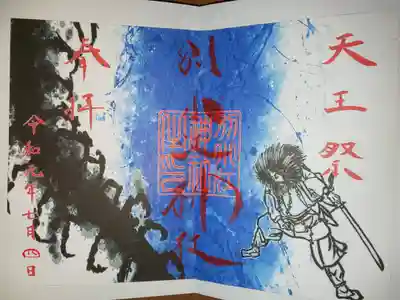 天王祭
別小江神社
奉拝
令和元年七月四日